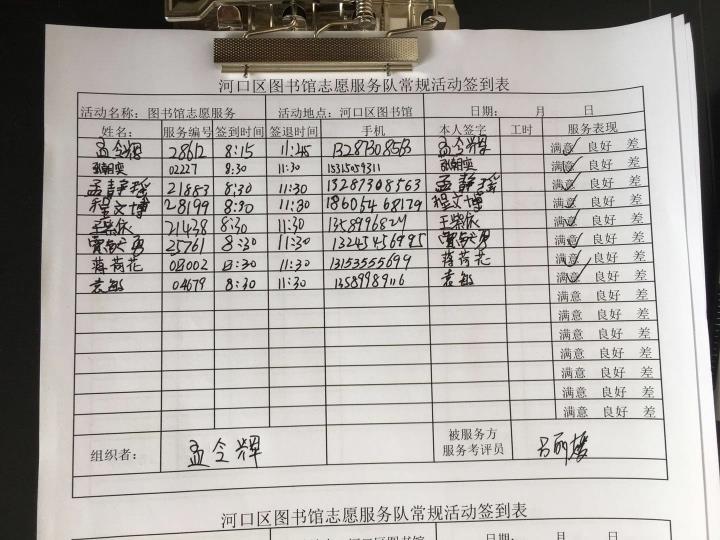 河口区图书馆志愿服务队常规活动签到表
活动名称：图书馆志愿服务 活动地点：河口区图书馆 日期： 月 日
姓名： 服务编号 签到时间 签退时间 手机 本人签字 工时 服务表现
孟令辉 28612 8:15 11:45 13287308563 孟令辉 满意 良好 差
02227 8:30 11:30 15315059311 满意 良好 差
孟静瑶 21853 8:30 11:30 13287308563 孟静瑶 满意 良好 差
程文博 28199 8:30 11:30 18605468179 程文博 满意 良好 差
王紫依 21438 8:30 11:30 1358996827 王紫依 满意 良好 差
25761 8:30 11:30 13245456995 满意 良好 差
蒋荷花 03002 8:30 11:30 13153555699 蒋荷花 满意 良好 差
袁敏 04679 8:30 11:30 13589989116 袁敏 满意 良好 差
满意 良好 差
满意 良好 差
满意 良好 差
满意 良好 差
满意 良好 差
满意 良好 差
满意 良好 差
组织者： 孟令辉 被服务方
服务考评员
河口区图书馆志愿服务队常规活动签到表